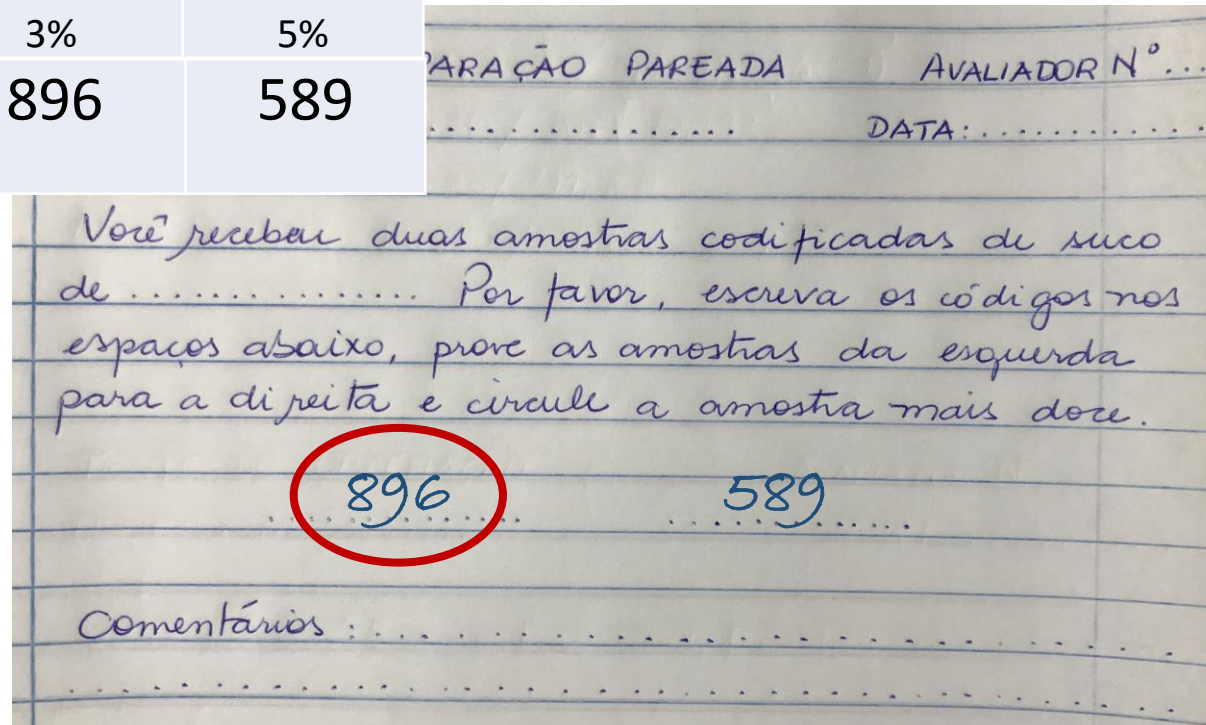 3% 5%
896 589
ARAÇÃO PAREADA AVALIADOR Nº...
................ DATA:............
Você recebeu duas amostras codificadas de suco
de ............... Por favor, escreva os códigos nos
espaços abaixo, prove as amostras da esquerda
para a direita e circule a amostra mais doce.
896 589
Comentários :..........................
..........................